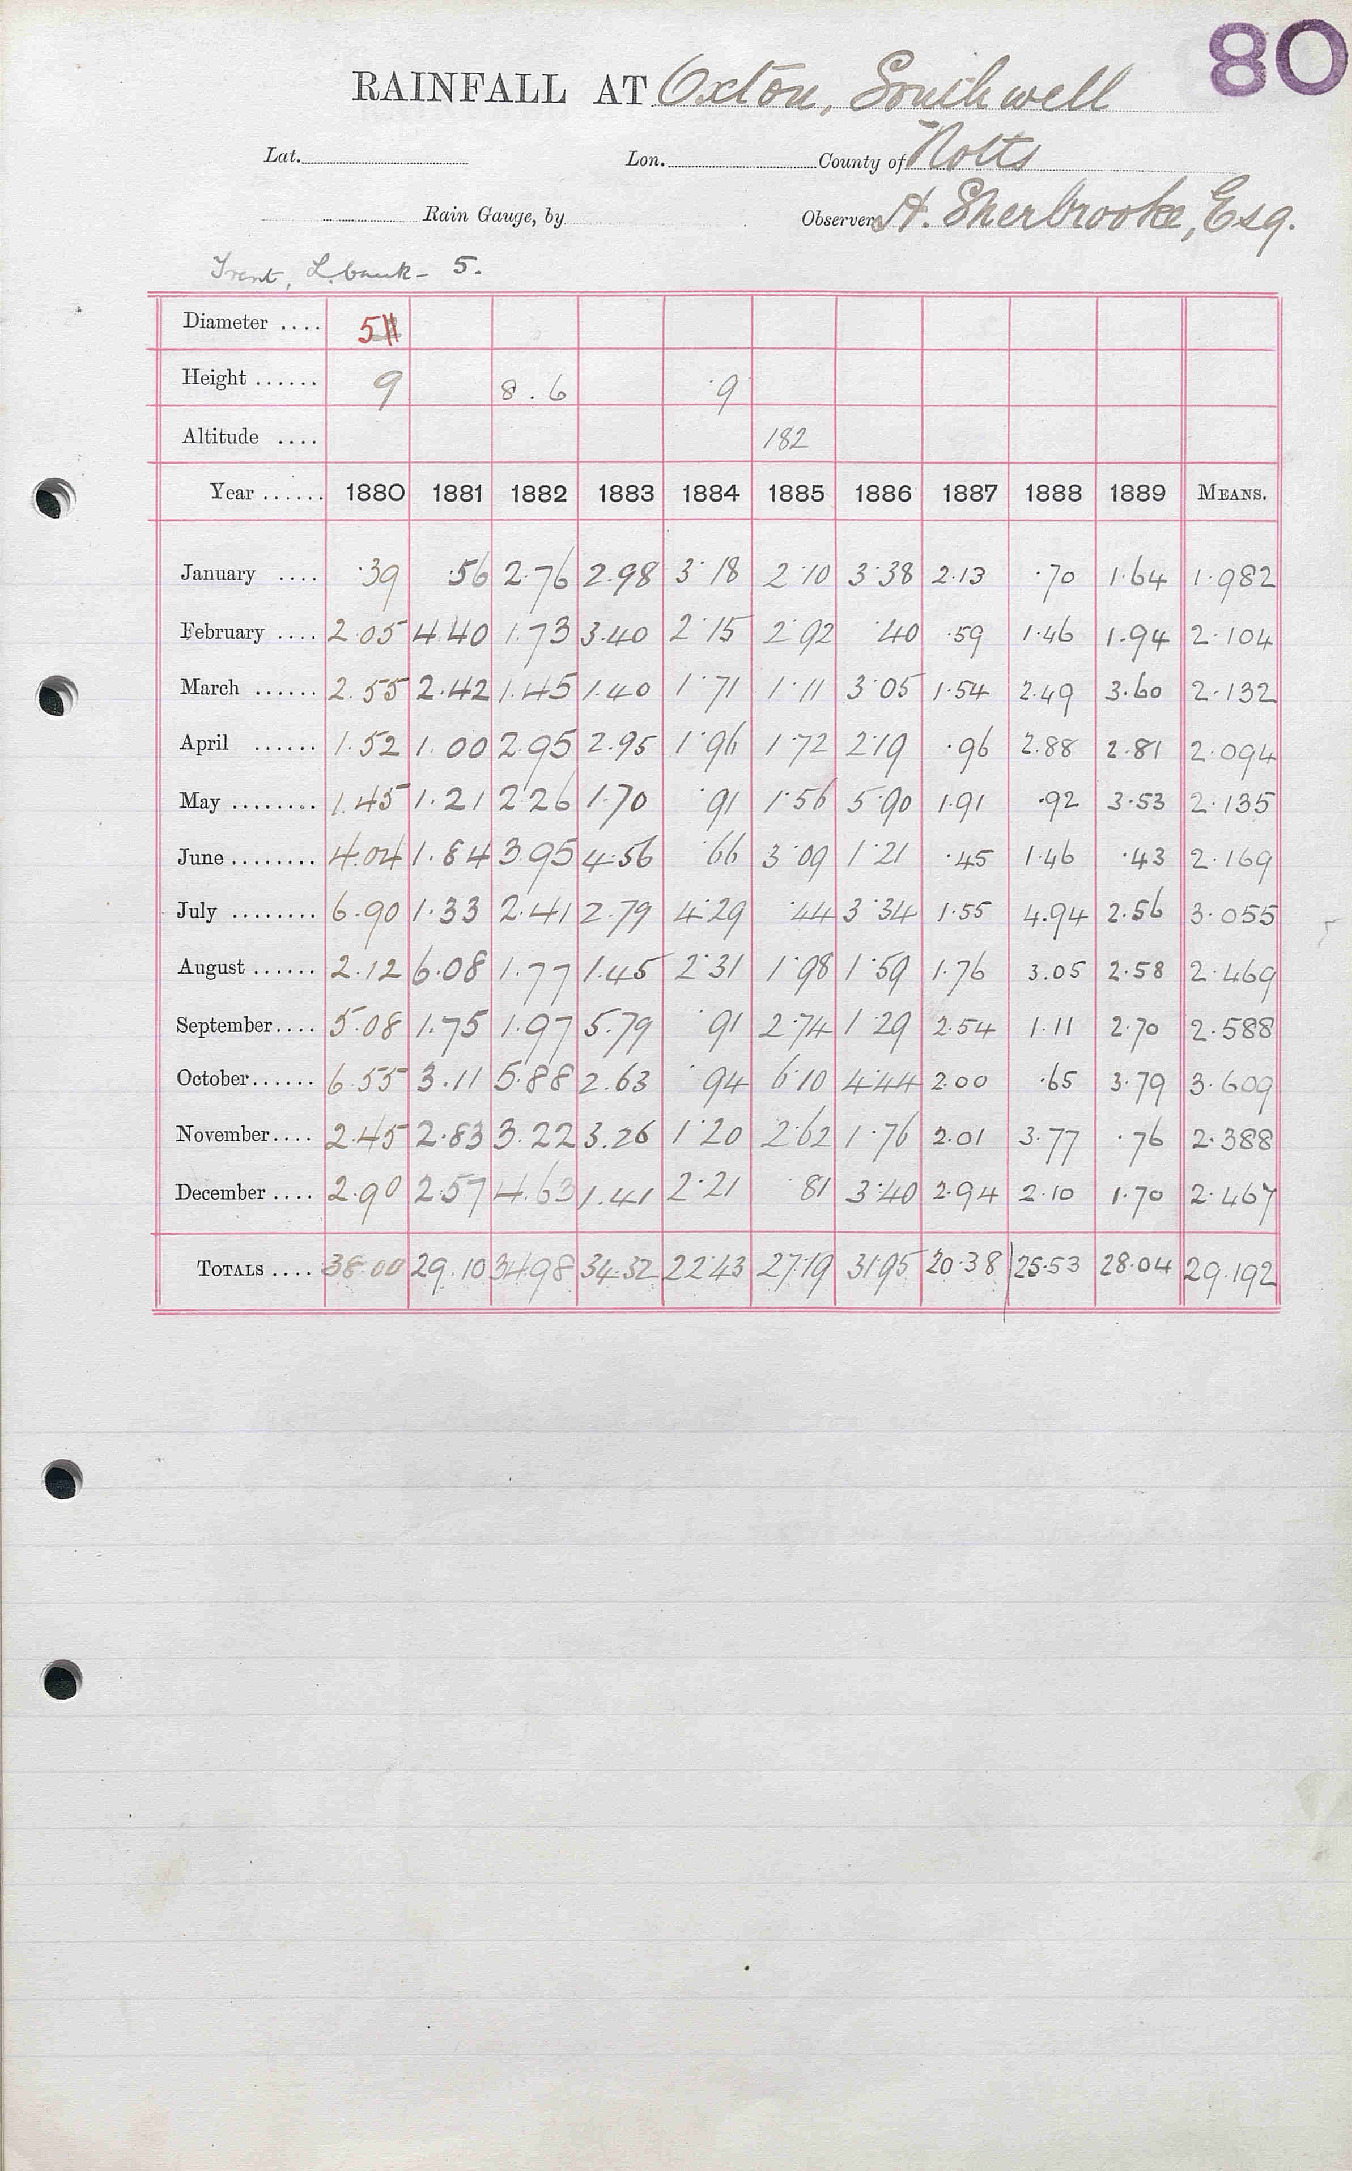 80
RAINFALL AT Oxton, Southwell
Lat. Lon. County of Notts
Rain Gauge, by Observer H. Sherbrooke, Esq.
Trent, L. bank - 5.
Diameter .... 5
Height ...... 9 8.6 9
Altitude .... 182
Year ...... 1880 1881 1882 1883 1884 1885 1886 1887 1888 1889 MEANS.
January .... .39 .56 2.76 2.98 3.18 2.10 3.38 2.13 .70 1.64 1.982
February .... 2.05 4.40 1.73 3.40 2.15 2.92 .40 .59 1.46 1.94 2.104
March ...... 2.55 2.42 1.45 1.40 1.71 1.11 3.05 1.54 2.49 3.60 2.132
April ...... 1.52 1.00 2.95 2.95 1.96 1.72 2.19 .96 2.88 2.81 2.094
May ........ 1.45 1.21 2.26 1.70 .91 1.56 5.90 1.91 .92 3.53 2.135
June ........ 4.04 1.84 3.95 4.56 .66 3.09 1.21 .45 1.46 .43 2.169
July ........ 6.90 1.33 2.41 2.79 4.29 .44 3.34 1.55 4.94 2.56 3.055
August ...... 2.12 6.08 1.77 1.45 2.31 1.98 1.59 1.76 3.05 2.58 2.469
September.... 5.08 1.75 1.97 5.79 .91 2.74 1.29 2.54 1.11 2.70 2.588
October...... 6.55 3.11 5.88 2.63 .94 6.10 4.44 2.00 .65 3.79 3.609
November.... 2.45 2.83 3.22 3.26 1.20 2.62 1.76 2.01 3.77 .76 2.388
December .... 2.90 2.57 4.63 1.41 2.21 .81 3.40 2.94 2.10 1.70 2.467
TOTALS .... 38.00 29.10 34.98 34.32 22.43 27.19 31.95 20.38 25.53 28.04 29.192